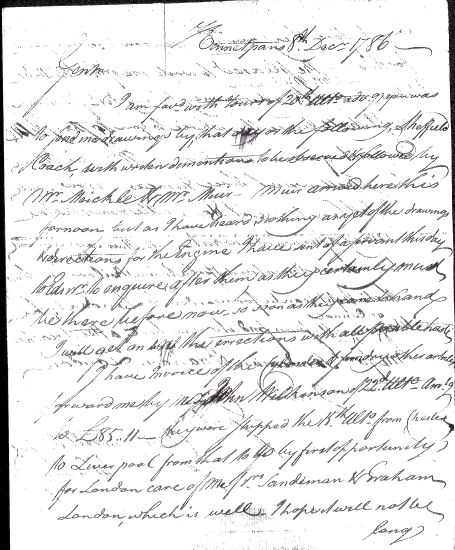 Kennetpans 8th Decr 1786
Gentn
I am favd with Yours of 28th Ulto adv.g you was
to send me drawings by that day or the following, Sheffield
Coach with written dimentions to be followed by
Mr. Meickle & Mr. Muir. Muir arrived here this
fornoon but as I have heard nothing as yet of the drawings
& directions for the Engine I have sent of a servant this day
to Edinr. to enquire after them as they certainly must
be there before now, so soon as they came to hand
I will get on with the errections with all possible haste
I have Invoice of the Cylinder & other articles
forward me by Mr John Wilkinson of 22d Ulto Amt.g
to £85.11 — they were shipped the 15th Ulto from Chester
to Liverpool from that to go by first opportunity
for London care of Messrs Sandeman & Graham
London, which is well & I hope it will not be
long